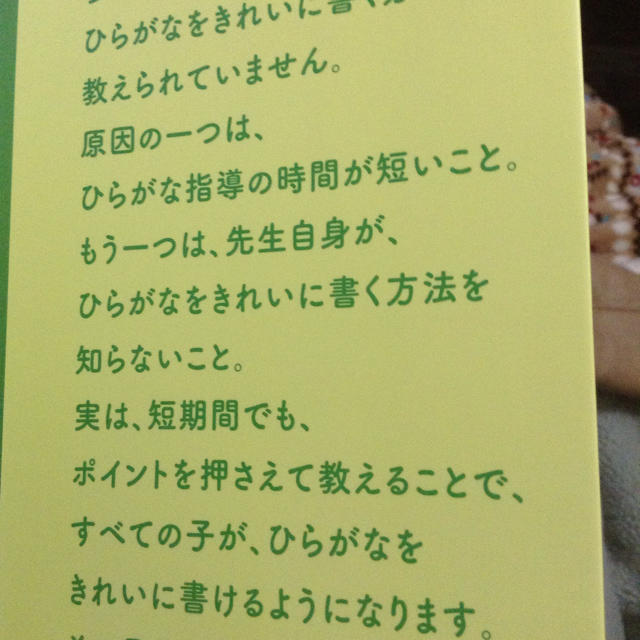 ひらがなをきれいに書く
教えられていません。
原因の一つは、
ひらがな指導の時間が短いこと。
もう一つは、先生自身が、
ひらがなをきれいに書く方法を
知らないこと。
実は、短期間でも、
ポイントを押さえて教えることで、
すべての子が、ひらがなを
きれいに書けるようになります。